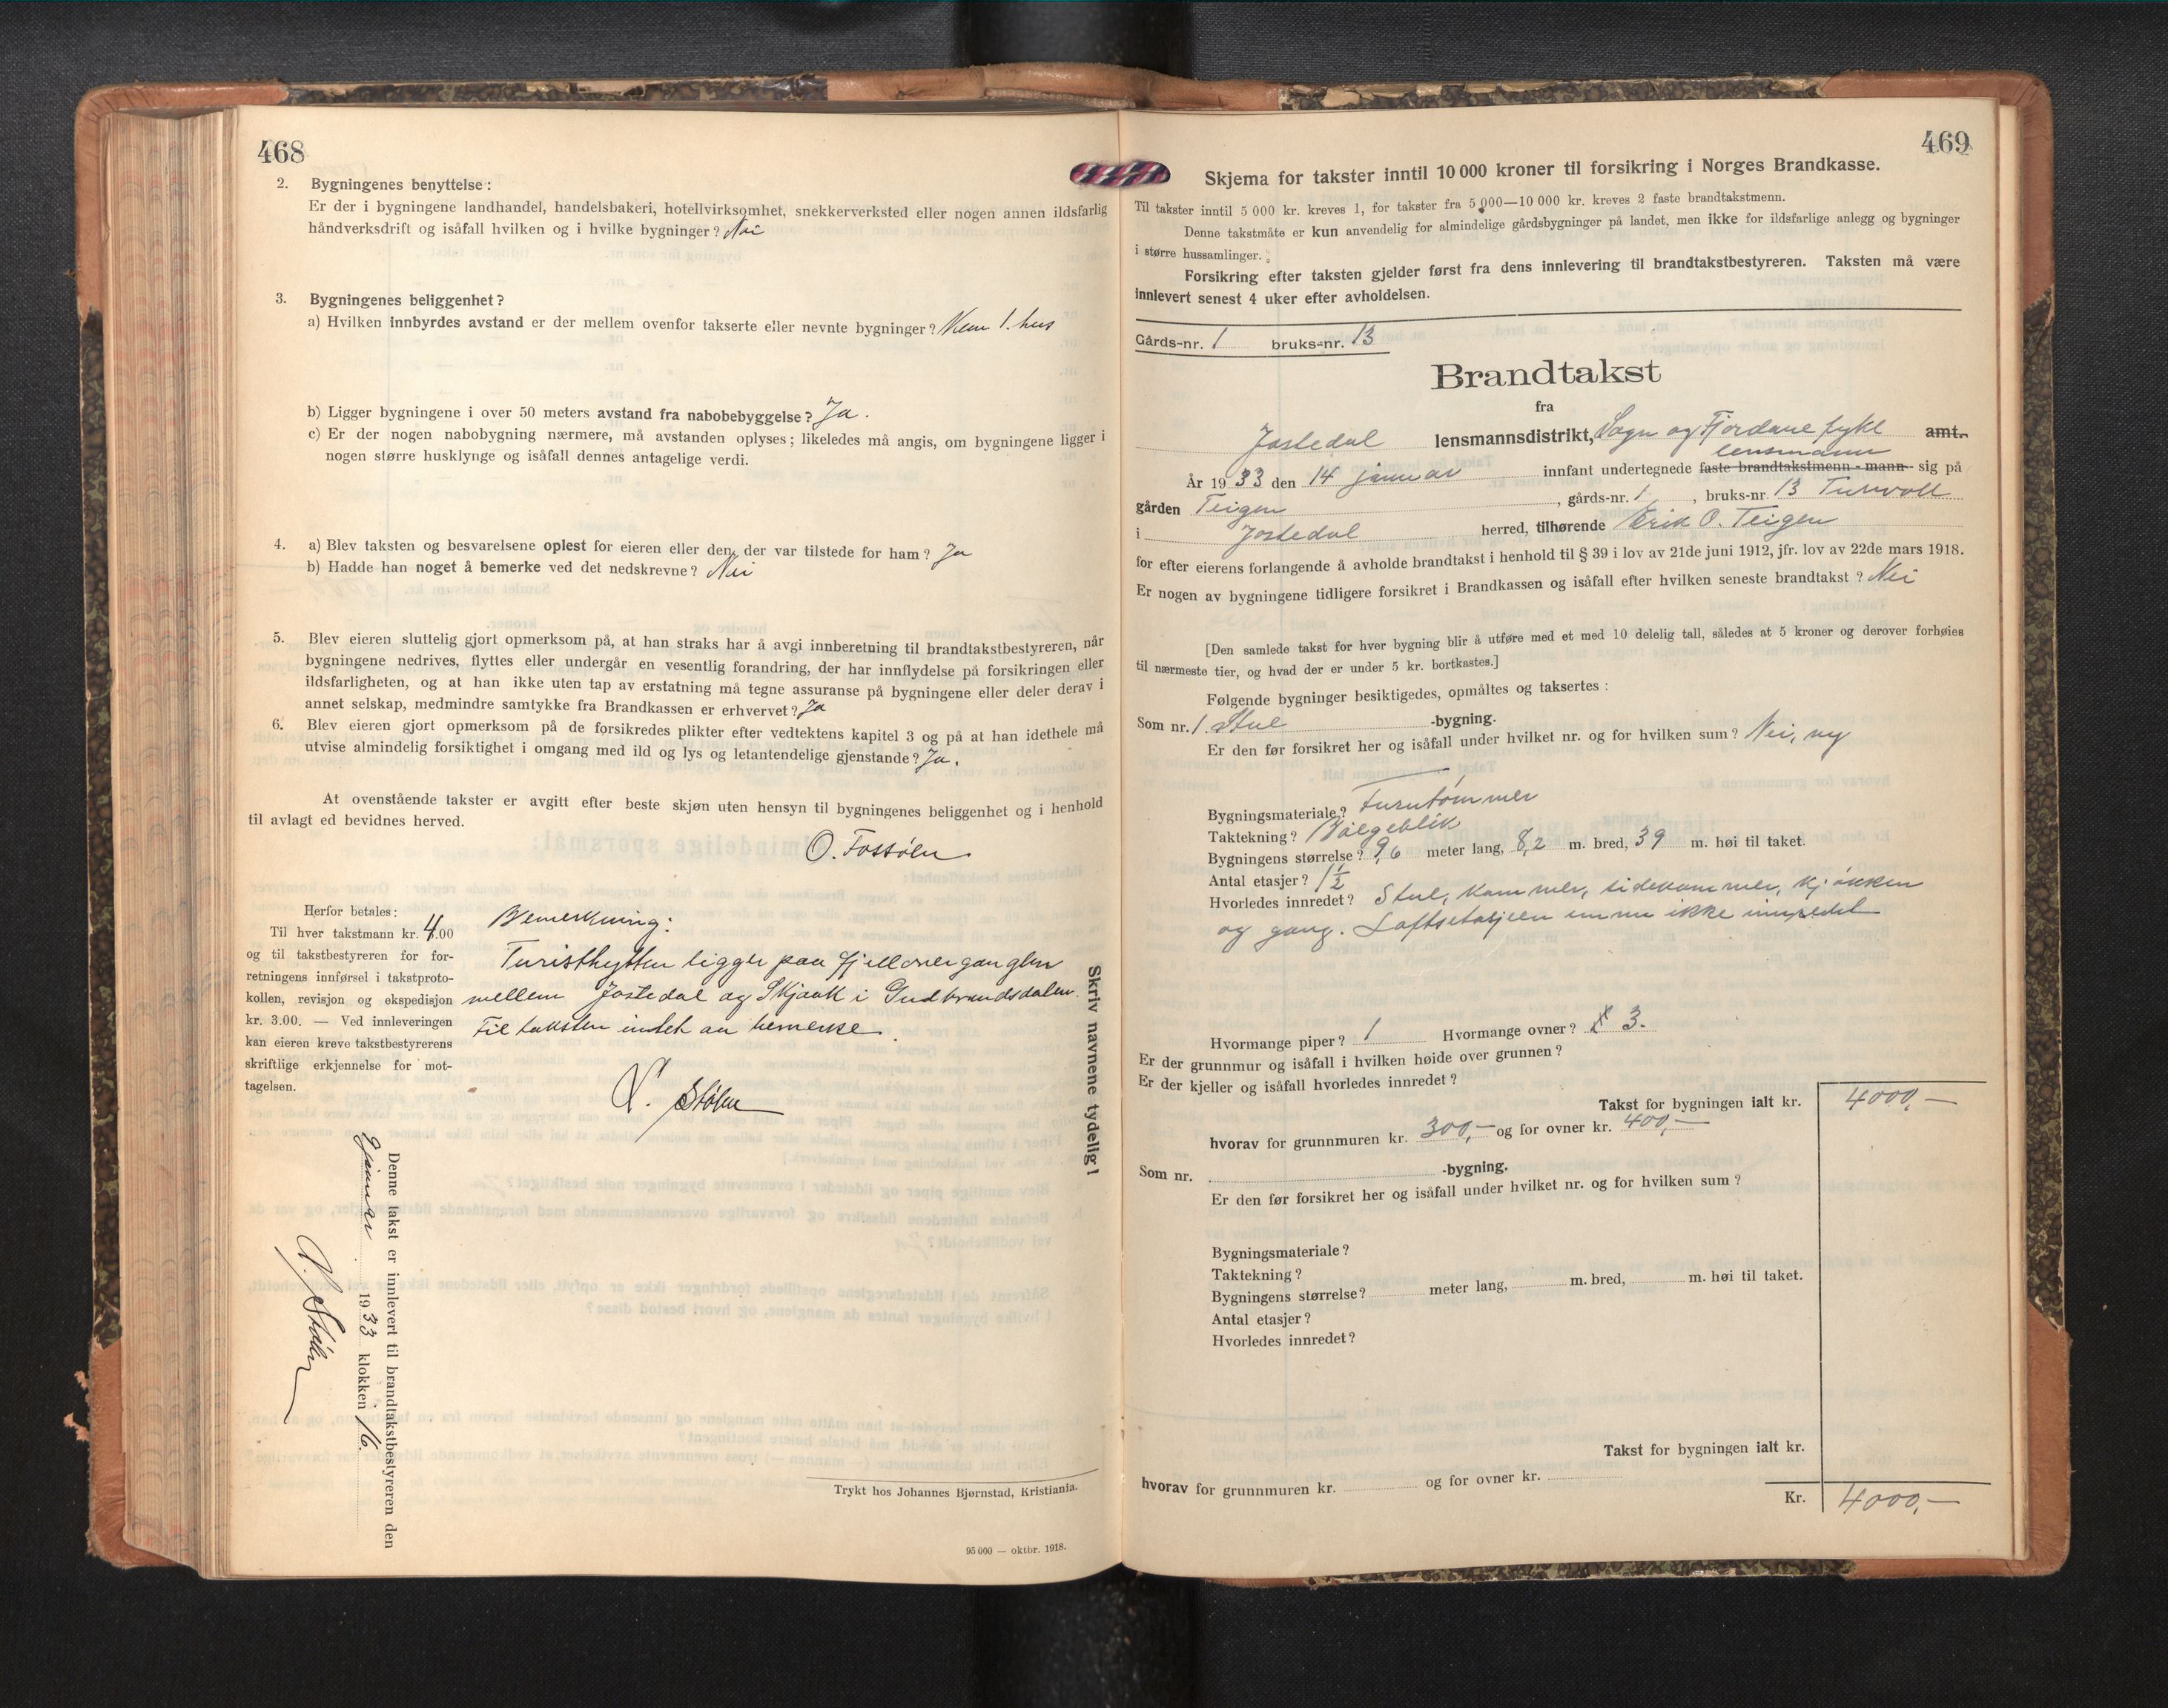 468
2. Bygningenes benyttelse :
Er der i bygningene landhandel, handelsbakeri, hotellvirksomhet, snekkerverksted eller nogen annen ildsfarlig
håndverksdrift og isåfall hvilken og i hvilke bygninger? Nei
3. Bygningenes beliggenhet?
a) Hvilken innbyrdes avstand er der mellem ovenfor takserte eller nevnte bygninger? Kun 1. hus
b) Ligger bygningene i over 50 meters avstand fra nabobebyggelse? Ja.
c) Er der nogen nabobygning nærmere, må avstanden oplyses; likeledes må angis, om bygningene ligger i
nogen større husklynge og isåfall dennes antagelige verdi.
4. a) Blev taksten og besvarelsene oplest for eieren eller den, der var tilstede for ham? Ja
b) Hadde han noget å bemerke ved det nedskrevne? Nei
5. Blev eieren sluttelig gjort opmerksom på, at han straks har å avgi innberetning til brandtakstbestyreren, når
bygningene nedrives, flyttes eller undergår en vesentlig forandring, der har innflydelse på forsikringen eller
ildsfarligheten, og at han ikke uten tap av erstatning må tegne assuranse på bygningene eller deler derav i
annet selskap, medmindre samtykke fra Brandkassen er erhvervet? Ja
6. Blev eieren gjort opmerksom på de forsikredes plikter efter vedtektens kapitel 3 og på at han idethele må
utvise almindelig forsiktighet i omgang med ild og lys og letantendelige gjenstande? Ja.
At ovenstående takster er avgitt efter beste skjøn uten hensyn til bygningenes beliggenhet og i henhold
til avlagt ed bevidnes herved.
O. Fossølen
Herfor betales:
Til hver takstmann kr. 4.00
og til takstbestyreren for for-
retningens innførsel i takstproto-
kollen, revisjon og ekspedisjon
kr. 3.00. — Ved innleveringen
kan eieren kreve takstbestyrerens
skriftlige erkjennelse for mot-
tagelsen.
Bemerkning:
Turisthytten ligger paa fjellovergangen
mellem Jostedal og Skjaak i Gudbrandsdalen.
Til taksten intet at bemerke.
Stølen
Skriv navnene tydelig!
Denne takst er innlevert til brandtakstbestyreren den
januar 1933 klokken 16.
Stølen
Trykt hos Johannes Bjørnstad, Kristiania.
95 000 — oktbr. 1918.
469
Skjema for takster inntil 10 000 kroner til forsikring i Norges Brandkasse.
Til takster inntil 5 000 kr. kreves 1, for takster fra 5 000—10 000 kr. kreves 2 faste brandtakstmenn.
Denne takstmåte er kun anvendelig for almindelige gårdsbygninger på landet, men ikke for ildsfarlige anlegg og bygninger
i større hussamlinger.
Forsikring efter taksten gjelder først fra dens innlevering til brandtakstbestyreren. Taksten må være
innlevert senest 4 uker efter avholdelsen.
Gårds-nr. 1 bruks-nr. 13
Brandtakst
fra
Jostedal lensmannsdistrikt, Sogn og Fjordane fylke amt.
lensmann
År 1933 den 14 januar innfant undertegnede faste brandtakstmenn - mann - sig på
gården Teigen, gårds-nr. 1, bruks-nr. 13
i Jostedal herred, tilhørende Erik O. Teigen
for efter eierens forlangende å avholde brandtakst i henhold til § 39 i lov av 21de juni 1912, jfr. lov av 22de mars 1918.
Er nogen av bygningene tidligere forsikret i Brandkassen og isåfall efter hvilken seneste brandtakst? Nei
[Den samlede takst for hver bygning blir å utføre med et med 10 delelig tall, således at 5 kroner og derover forhøies
til nærmeste tier, og hvad der er under 5 kr. bortkastes.]
Følgende bygninger besiktigedes, opmåltes og taksertes :
Som nr. 1. Stue -bygning.
Er den før forsikret her og isåfall under hvilket nr. og for hvilken sum? Nei, ny
Bygningsmateriale? Furutømmer
Taktekning? Bølgeblik
Bygningens størrelse? 9,6 meter lang, 8,2 m. bred, 39 m. høi til taket.
Antal etasjer? 1 1/2
Hvorledes innredet? Stue, kammer, sidekammer, kjøkken
og gang. Loftsetasjeen ennu ikke innredet
Hvormange piper? 1 Hvormange ovner? 3.
Er der grunnmur og isåfall i hvilken høide over grunnen?
Er der kjeller og isåfall hvorledes innredet?
Takst for bygningen ialt kr. 4000,-
hvorav for grunnmuren kr. 300,- og for ovner kr. 400,-
Som nr. -bygning.
Er den før forsikret her og isåfall under hvilket nr. og for hvilken sum?
Bygningsmateriale?
Taktekning?
Bygningens størrelse? meter lang, m. bred, m. høi til taket.
Antal etasjer?
Hvorledes innredet?
Takst for bygningen ialt kr.
hvorav for grunnmuren kr. og for ovner kr.
Kr. 4000,-